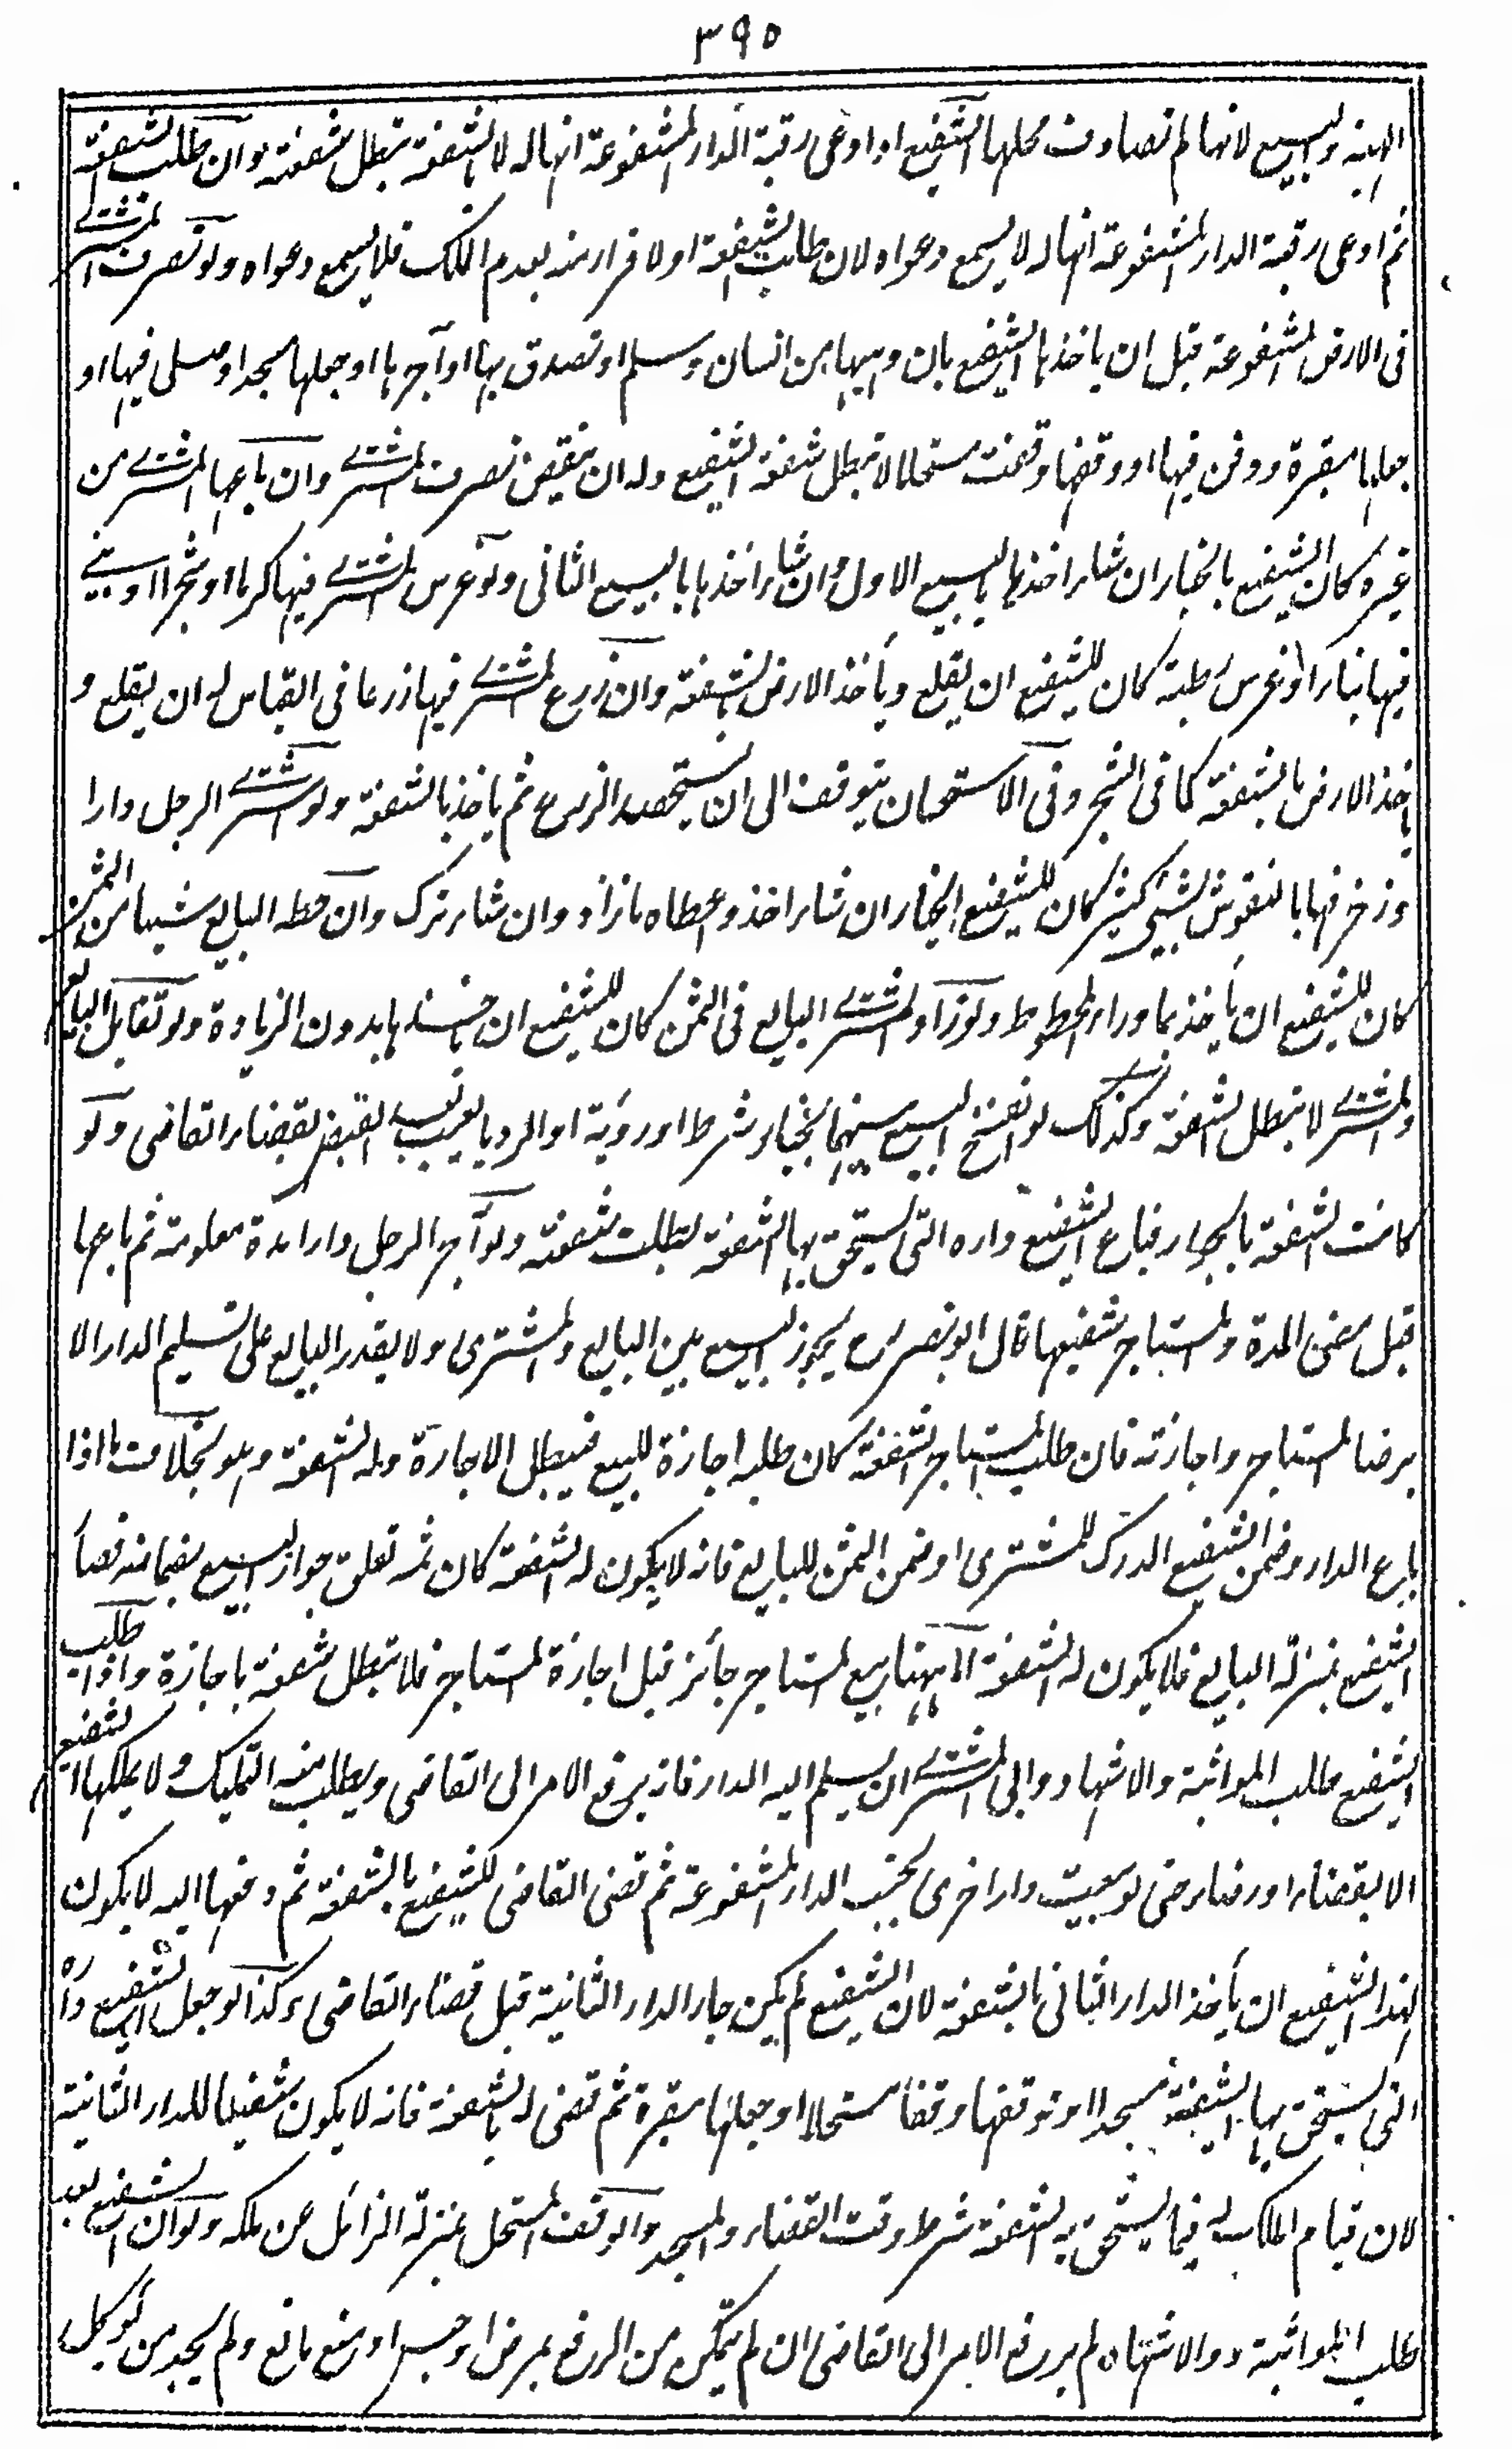 ٣٩٥
الهبة والبيع لانها لم تصادف محلها الشفيع اذا ادعى رقبة الدار المشفوعة انها له لا بالشفعة تبطل شفعته وان طلب الشفعة
ثم ادعى رقبة الدار المشفوعة انها له لا يسمع دعواه لان طلب الشفعة اولا اقرار منه بعدم الملك فلا يسمع دعواه ولو تصرف المشتري
فى الارض المشفوعة قبل ان ياخذها الشفيع بان وهبها من انسان وسلم او تصدق بها او آجرها او جعلها مسجدا وصلى فيها او
جعلها مقبرة ودفن فيها او وقفها وقفا مستحلا لا تبطل شفعة الشفيع وله ان ينقض تصرف المشترى وان باعها المشترى من
غيره كان الشفيع بالخيار ان شاء اخذها بالبيع الاول وان شاء اخذها بالبيع الثانى ولو غرس المشترى فيها كرما او شجرا او بنى
فيها بناء او غرس رطبة كان للشفيع ان يقلع وياخذ الارض بالشفعة وان زرع المشترى فيها زرعا فى القياس له ان يقلع و
ياخذ الارض بالشفعة كما فى الشجر وفى الاستحسان يتوقف الى ان يستحصد الزرع ثم ياخذ بالشفعة ولو اشترى الرجل دارا
وزخرفها بالنقوش بشئ كثير كان للشفيع الخيار ان شاء اخذ واعطاه ما زاد وان شاء ترك وان حط البايع شيئا من الثمن
كان للشفيع ان ياخذ بما وراء المحطوط ولو زاد المشترى البايع فى الثمن كان للشفيع ان ياخذها بدون الزيادة ولو تقايل البايع
والمشترى لا تبطل الشفعة وكذلك لو انفسخ البيع بينهما بخيار شرط او رؤية او الرد بالعيب بعد القبض بقضاء القاضى ولو
كانت الشفعة بالجوار فباع الشفيع داره التى يستحق بها الشفعة بطلت شفعته ولو آجر الرجل دارا مدة معلومة ثم باعها
قبل مضى المدة والمستاجر شفيعها قال ابو نصر رح يجوز البيع بين البايع والمشترى ولا يقدر البايع على تسليم الدار الا
برضا المستاجر واجازته فان طلب المستاجر الشفعة كان طلبه اجازة للبيع فيبطل الاجارة وله الشفعة وهو بخلاف ما اذا
باع الدار وضمن الشفيع الدرك للمشترى او ضمن الثمن للبايع فانه لا يكون له الشفعة كان ثمه تعلق جواز البيع بضمانه فصار
الشفيع بمنزلة البايع فلا يكون له الشفعة اما ههنا بيع المستاجر جائز قبل اجازة المستاجر فلا تبطل شفعته باجازة واذا طلب
الشفيع طلب المواثبة والاشهاد وابى المشترى ان يسلم اليه الدار فانه يرفع الامر الى القاضى ويطلب منه التمليك ولا يملكها الشفيع
الا بقضاء او رضاء حتى لو بيعت دار اخرى بجنب الدار المشفوعة ثم قضى القاضى للشفيع بالشفعة ثم دفعها اليه لا يكون
لهذا الشفيع ان ياخذ الدار الثانى بالشفعة لان الشفيع لم يكن جار الدار الثانية قبل قضاء القاضى وكذا لو جعل الشفيع داره
التى يستحق بها الشفعة مسجدا او توقفها وقفا مستحلا او جعلها مقبرة ثم قضى له بالشفعة فانه لا يكون شفيعا للدار الثانية
لان قيام الملك له فيما يستحق به الشفعة شرط وقت القضاء والمسجد والوقف المستحل بمنزلة الزائل عن ملكه ولو ان الشفيع بعد
طلب المواثبة والاشهاد لم يرفع الامر الى القاضى ان لم يتمكن من الرفع بمرض او حبس او منع مانع ولم يجد من يوكل